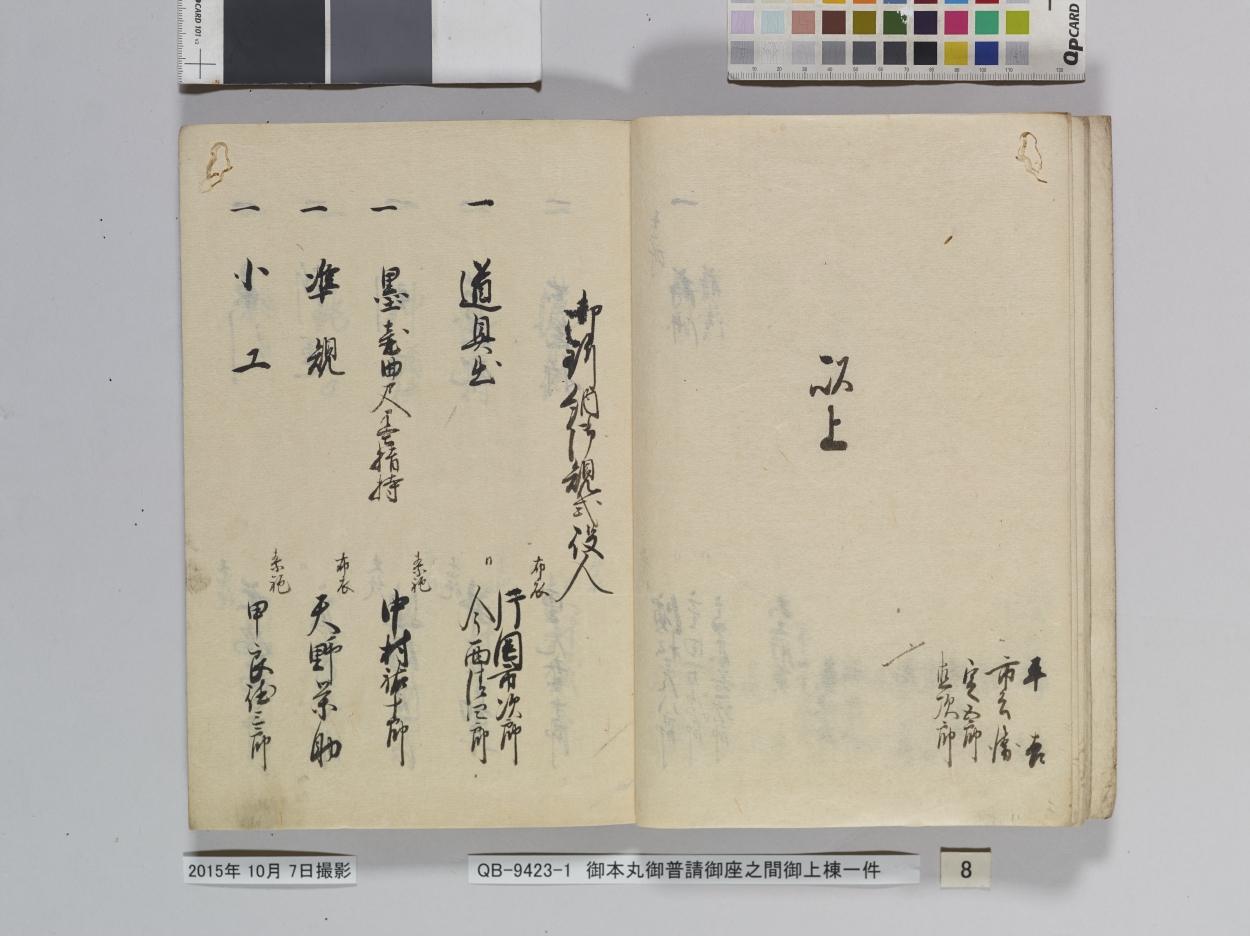 平吉
市右衛
定五郎
直次郎
以上
御釿始御規式役人
一 道具出
布衣
片岡市次郎
〃
今西清四郎
一 墨壺曲尺墨指持
素袍
中村祐十郎
一 準規
布衣
天野栄助
一 小工
素袍
甲良徳三郎
2015年 10月 7日撮影
QB-9423-1 御本丸御普請御座之間御上棟一件
8
QPCARD
QPCARD 101 v3